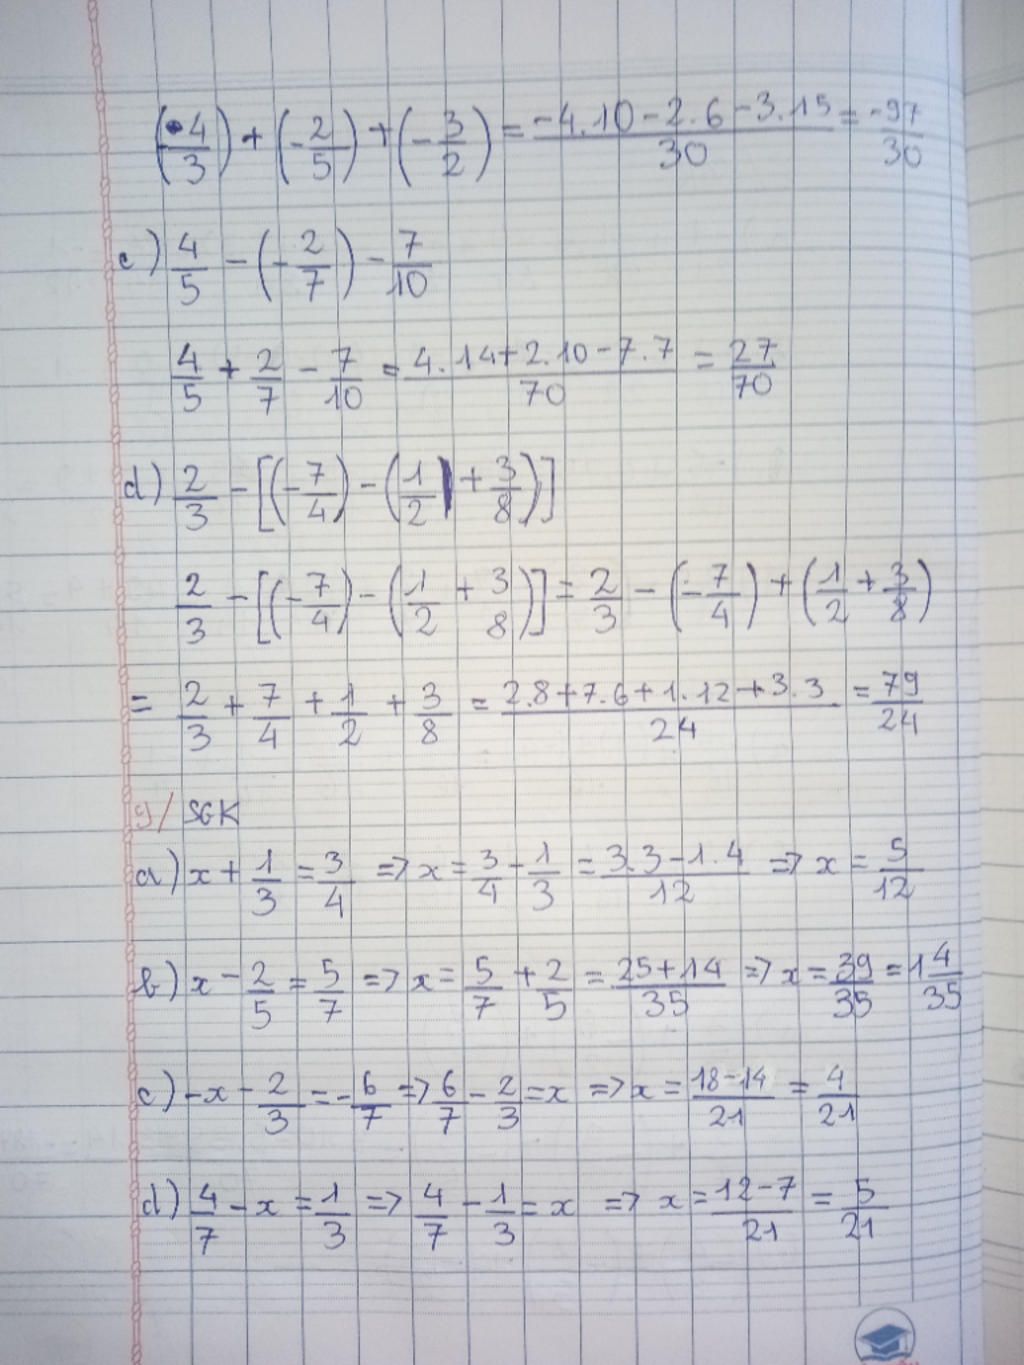 (-4/3) + (-2/5) + (-3/2) = (-4.10 - 2.6 - 3.15)/30 = -97/30
c) 4/5 - (-2/7) - 7/10
4/5 + 2/7 - 7/10 = (4.14 + 2.10 - 7.7)/70 = 27/70
d) 2/3 - [(-7/4) - (1/2 + 3/8)]
2/3 - [(-7/4) - (1/2 + 3/8)] = 2/3 - (-7/4) + (1/2 + 3/8)
= 2/3 + 7/4 + 1/2 + 3/8 = (2.8 + 7.6 + 1.12 + 3.3)/24 = 79/24
9/ SGK
a) x + 1/3 = 3/4 => x = 3/4 - 1/3 = (3.3 - 1.4)/12 => x = 5/12
b) x - 2/5 = 5/7 => x = 5/7 + 2/5 = (25 + 14)/35 => x = 39/35 = 1 4/35
c) -x - 2/3 = -6/7 => 6/7 - 2/3 = x => x = (18 - 14)/21 = 4/21
d) 4/7 - x = 1/3 => 4/7 - 1/3 = x => x = (12 - 7)/21 = 5/21